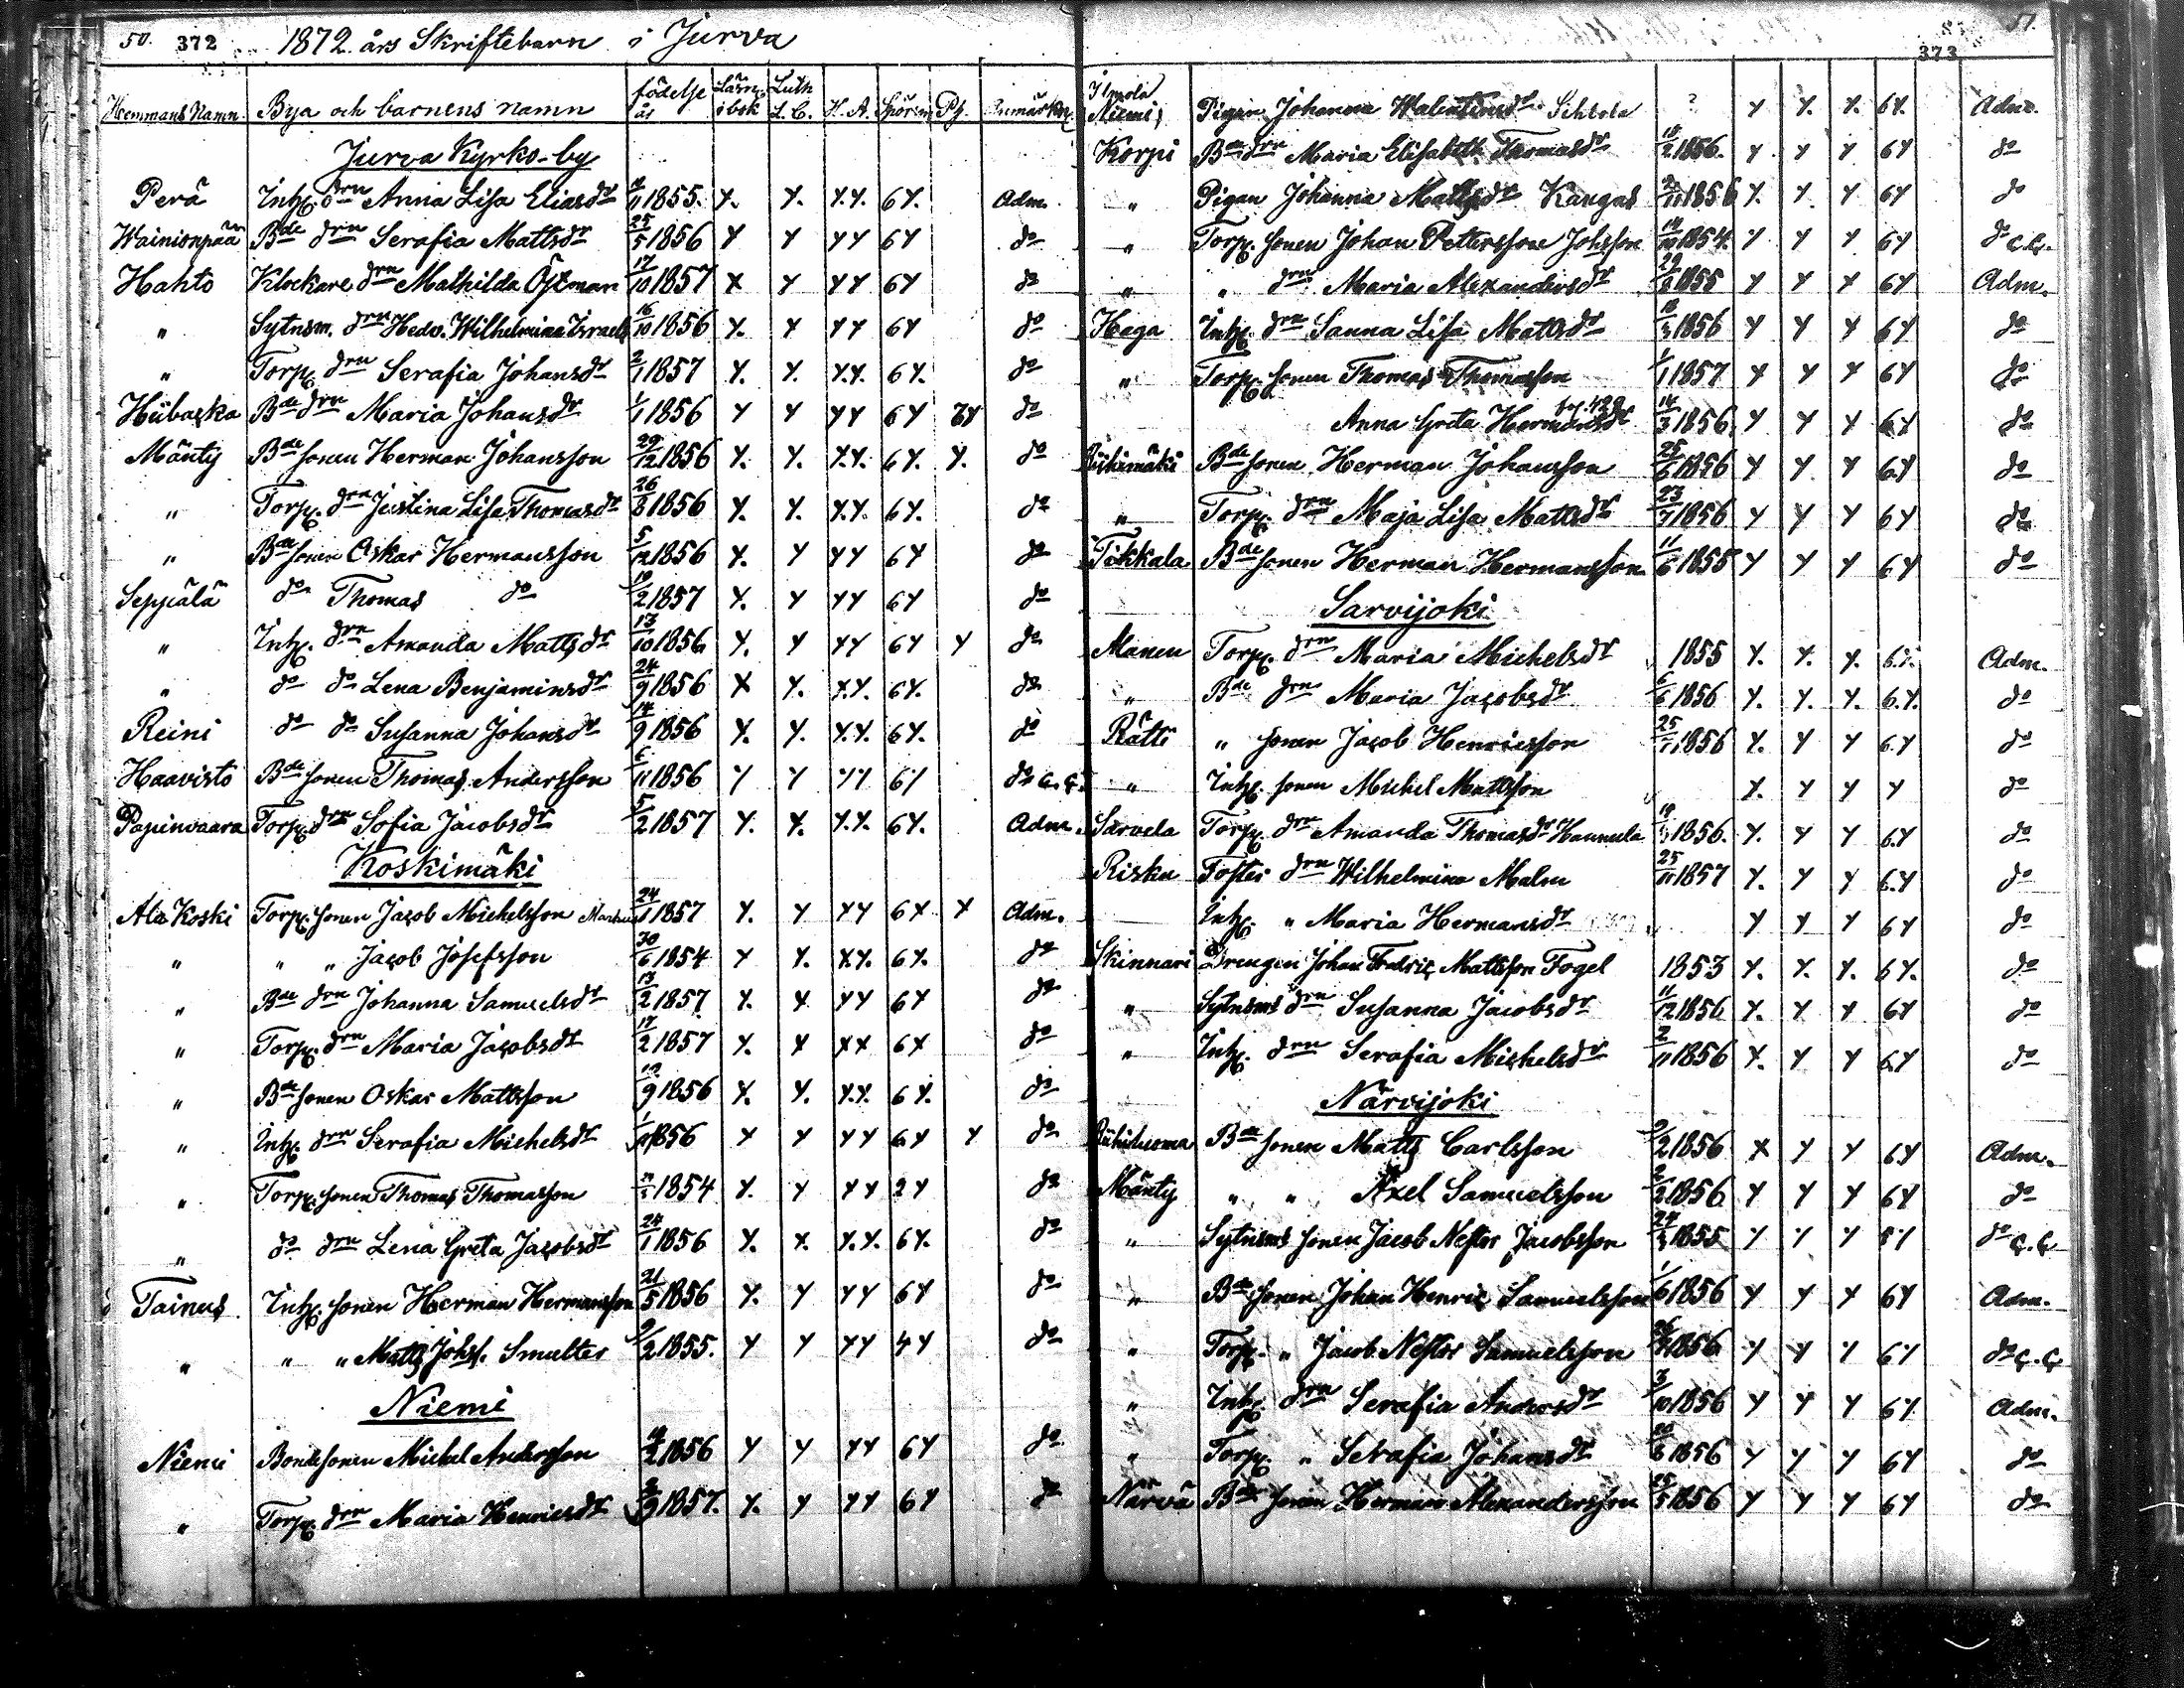 50. 372 1872 års Skriftebarn i Jurva
Hemmans Namn. Bya och barnens namn födelse år Läsn. i bok Luth. L. C. H. A. Spörsm. Ps. Anmärkn.
Jurva Kyrko-by
Perä Inhs. drn Anna Lisa Eliasdr 11 1855. Y. Y. Y.Y. 6Y. Adm.
Wainionpää Bde drn Serafia Mattsdr 25/5 1856 Y Y YY 6Y do
Hahto Klockare drn Mathilda Östman 17/10 1857 X Y YY 6Y do
" Sytnsm. drn Hedv. Wilhelmina Israels 16/10 1856 Y. Y YY 6Y do
" Torp. drn Serafia Johansdr 2/1 1857 Y. Y. Y.Y. 6Y. do
Hübaska Bde drn Maria Johansdr 1/1 1856 Y Y YY 6Y 7Y do
Mänty Bde sonen Herman Johansson 29/12 1856 Y. Y. Y.Y. 6Y. Y. do
" Torp. drn Justina Lisa Thomasdr 26/8 1856 Y. Y. Y.Y. 6Y. do
" Bde sonen Oskar Hermansson 5/12 1856 Y. Y YY 6Y do
Seppälä do Thomas do 10/2 1857 Y. Y YY 6Y do
" Inhs. drn Amanda Mattsdr 13/10 1856 Y. Y YY 6Y Y do
" do do Lena Benjaminsdr 24/9 1856 X Y. Y.Y. 6Y. do
Reini do do Susanna Johansdr 14/9 1856 Y. Y. Y.Y. 6Y. do
Haavisto Bde sonen Thomas Andersson 6/11 1856 Y Y YY 6Y do C.C.
Papinvaara Torp. drn Sofia Jacobsdr 5/2 1857 Y. Y. Y.Y. 6Y. Adm.
Koskimäki
Ala Koski Torp. sonen Jacob Michelsson 24 1857 Y. Y YY 6Y Y Adm.
" " " Jacob Josefsson 30/6 1854 Y Y. Y.Y. 6Y. do
" Bde drn Johanna Samuelsdr 13/2 1857 Y. Y YY 6Y do
" Torp. drn Maria Jacobsdr 17/2 1857 Y. Y YY 6Y do
" Bde sonen Oskar Mattsson 9 1856 Y. Y. Y.Y. 6Y. do
" Inhs. drn Serafia Michelsdr 1856 Y Y YY 6Y Y do
" Torp. sonen Thomas Thomasson 1854 Y. Y YY 2Y do
" do drn Lena Greta Jacobsdr 24/1 1856 Y. Y. Y.Y. 6Y. do
Tainus Inhs. sonen Herman Hermansson 21/5 1856 Y. Y YY 6Y do
" " " Matts Johs. Smulter 9/2 1855. Y Y YY 4Y do
Niemi
Niemi Bondesonen Michel Andersson 1856 Y Y YY 6Y do
" Torp. drn Maria Henricsdr 9 1857. Y. Y YY 6Y do
51.
373
Niemi, Pigan Johanna Walentinsdr ? Y Y. Y. 6Y. Adm.
Korpi Bde drn Maria Elisabeth Thomasdr 18/2 1856. Y Y Y 6Y do
" Pigan Johanna Mattsdr Kangas 1856 Y. Y. Y 6Y do
" Torp. sonen Johan Pettersson Johsson 14/10 1854. Y Y Y 6Y do C.C.
" " drn Maria Alexandersdr 29/8 1855 Y Y Y 6Y Adm.
Haga Inhs. drn Sanna Lisa Mattsdr 1856 Y Y Y 6Y do
" Torp. sonen Thomas Thomasson 1/1 1857 Y Y Y 6Y do
Anna Greta Hermansdr 14/3 1856 Y Y Y 6Y do
Riihimäki Bde sonen Herman Johansson 25/6 1856 Y Y Y 6Y do
" Torp. drn Maja Lisa Mattsdr 23/7 1856 Y Y Y 6Y do
Tikkala Bde sonen Herman Hermansson 11/6 1855 Y Y Y 6Y do
Sarvijoki
Manen Torp. drn Maria Michelsdr 1855 Y. Y. Y. 6Y. Adm.
" Bde drn Maria Jacobsdr 6/6 1856 Y. Y. Y. 6Y. do
Rätti " sonen Jacob Henricsson 25/11 1856 Y. Y Y 6Y do
" Inhs. sonen Michel Mattsson Y. Y Y Y do
Sarvela Torp. drn Amanda Thomasdr Hannula 1856. Y. Y Y 6Y do
Risku Foster drn Wilhelmina Malm 25/11 1857 Y. Y Y 6Y do
Inhs. " Maria Hermansdr Y Y Y 6Y do
Skinnari Drengen Johan Fredric Mattsson Fogel 1853 Y. Y. Y. 6Y. do
" Sytnsms drn Susanna Jacobsdr 11/12 1856 Y. Y Y 6Y do
" Inhs. drn Serafia Michelsdr 2/11 1856 Y. Y Y 6Y do
Närvijoki
Riihiluoma Bde sonen Matts Carlsson 2 1856 X Y Y 6Y Adm.
Mänty " " Axel Samuelsson 2/2 1856 Y Y Y 6Y do
" Sytnsms sonen Jacob Nestor Jacobsson 1855 Y Y Y 5Y do C.C
" Bde sonen Johan Henric Samuelsson 1/6 1856 Y Y Y 6Y Adm.
" Torp. " Jacob Nestor Samuelsson 1856 Y Y Y 6Y do C.C
" Inhs. drn Serafia Andersdr 3/10 1856 Y Y Y 6Y Adm.
" Torp. " Serafia Johansdr 1856 Y Y Y 6Y do
Närvä Bde sonen Herman Alexandersson 25/5 1856 Y Y Y 6Y do